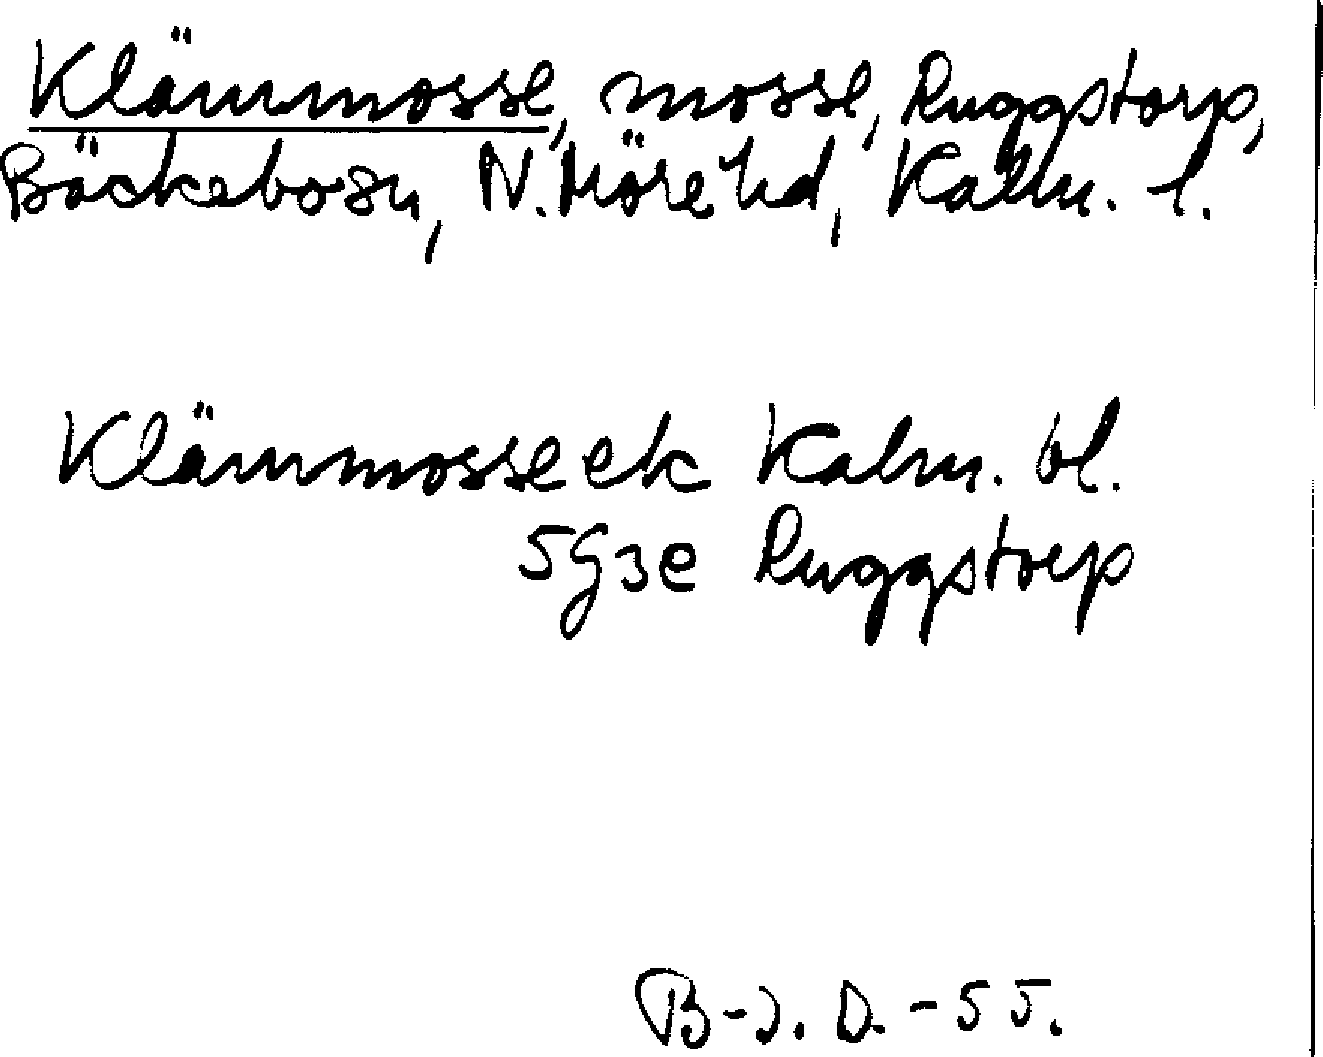 Klämmosse, mosse, Ruggstorp,
Bäckebo sn, N. Möre hd, Kalm. l.
Klämmosse ek Kalm. bl.
5G3e Ruggstorp
B-J. D. -55.